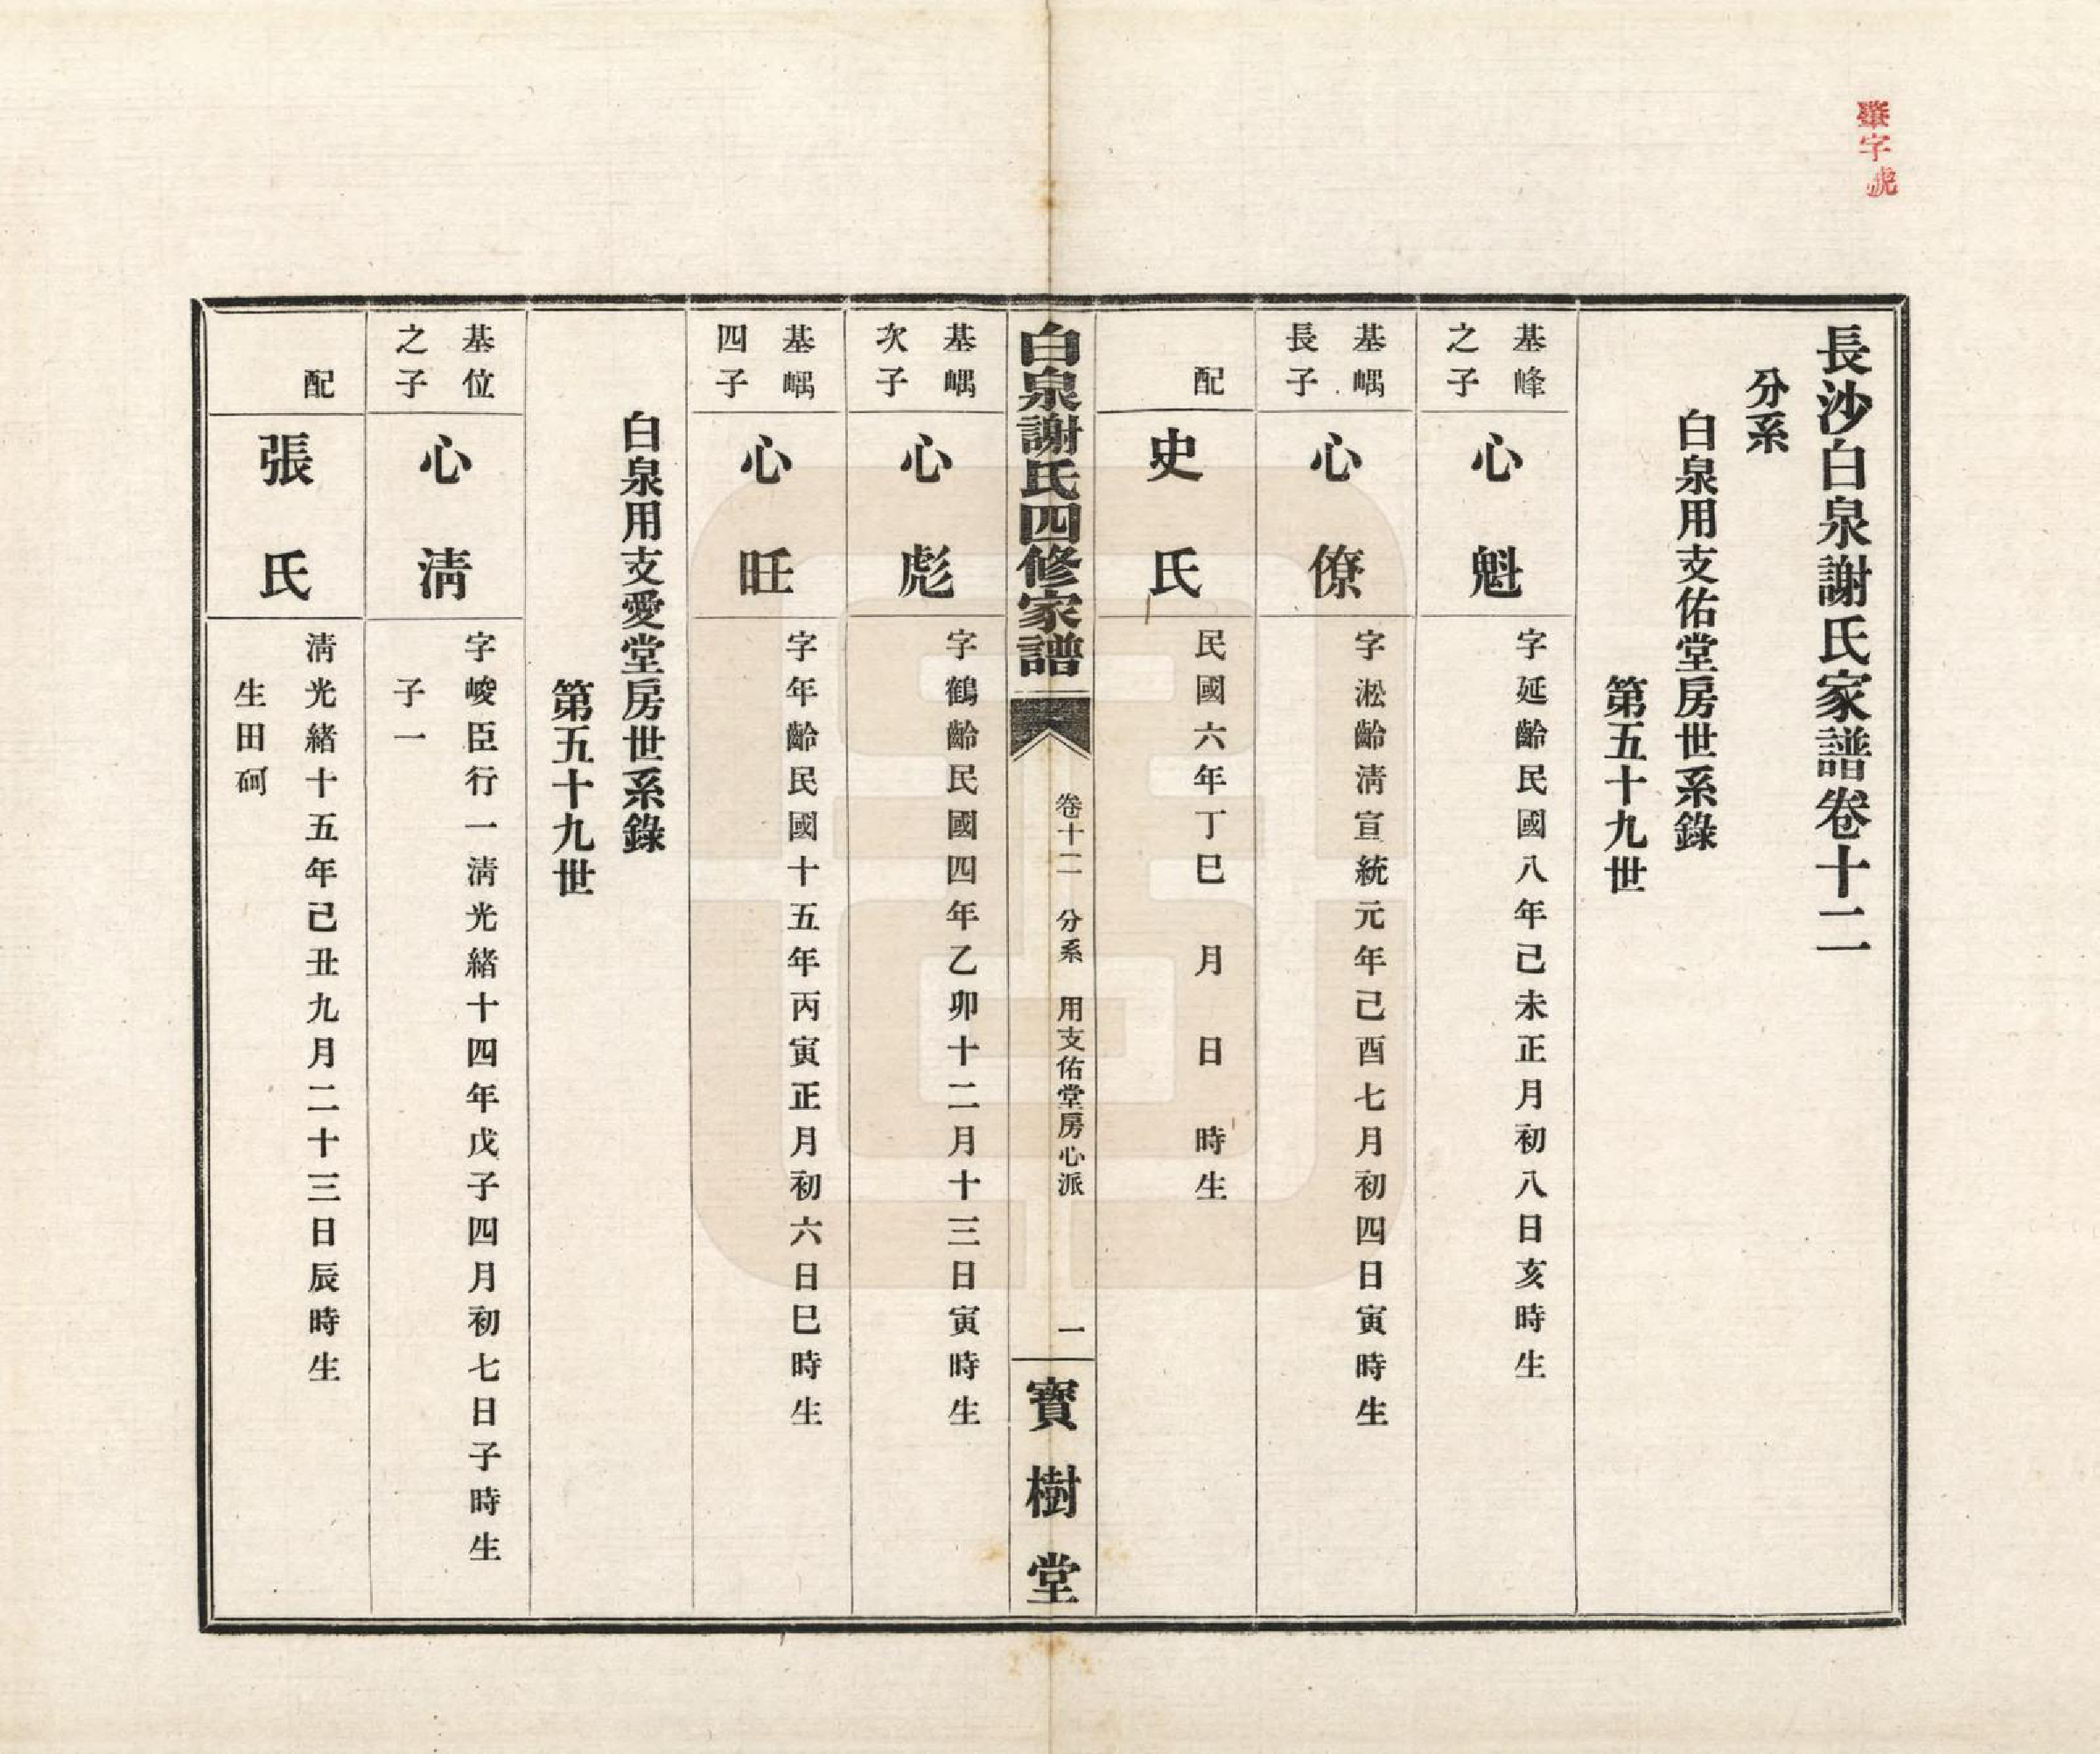 字號
長沙白泉謝氏家譜卷十二
分系
白泉用支佑堂房世系錄
第五十九世
基峰之子
心魁
字延齡民國八年己未正月初八日亥時生
基嵎長子
心僚
字淞齡淸宣統元年己酉七月初四日寅時生
配
史氏
民國六年丁巳 月 日 時生
白泉謝氏四修家譜
卷十二 分系 用支佑堂房心派
一
寶樹堂
基嵎次子
心彪
字鶴齡民國四年乙卯十二月十三日寅時生
基嵎四子
心旺
字年齡民國十五年丙寅正月初六日巳時生
白泉用支愛堂房世系錄
第五十九世
基位之子
心淸
字峻臣行一淸光緒十四年戊子四月初七日子時生
子一
配
張氏
淸光緒十五年己丑九月二十三日辰時生
生田砢